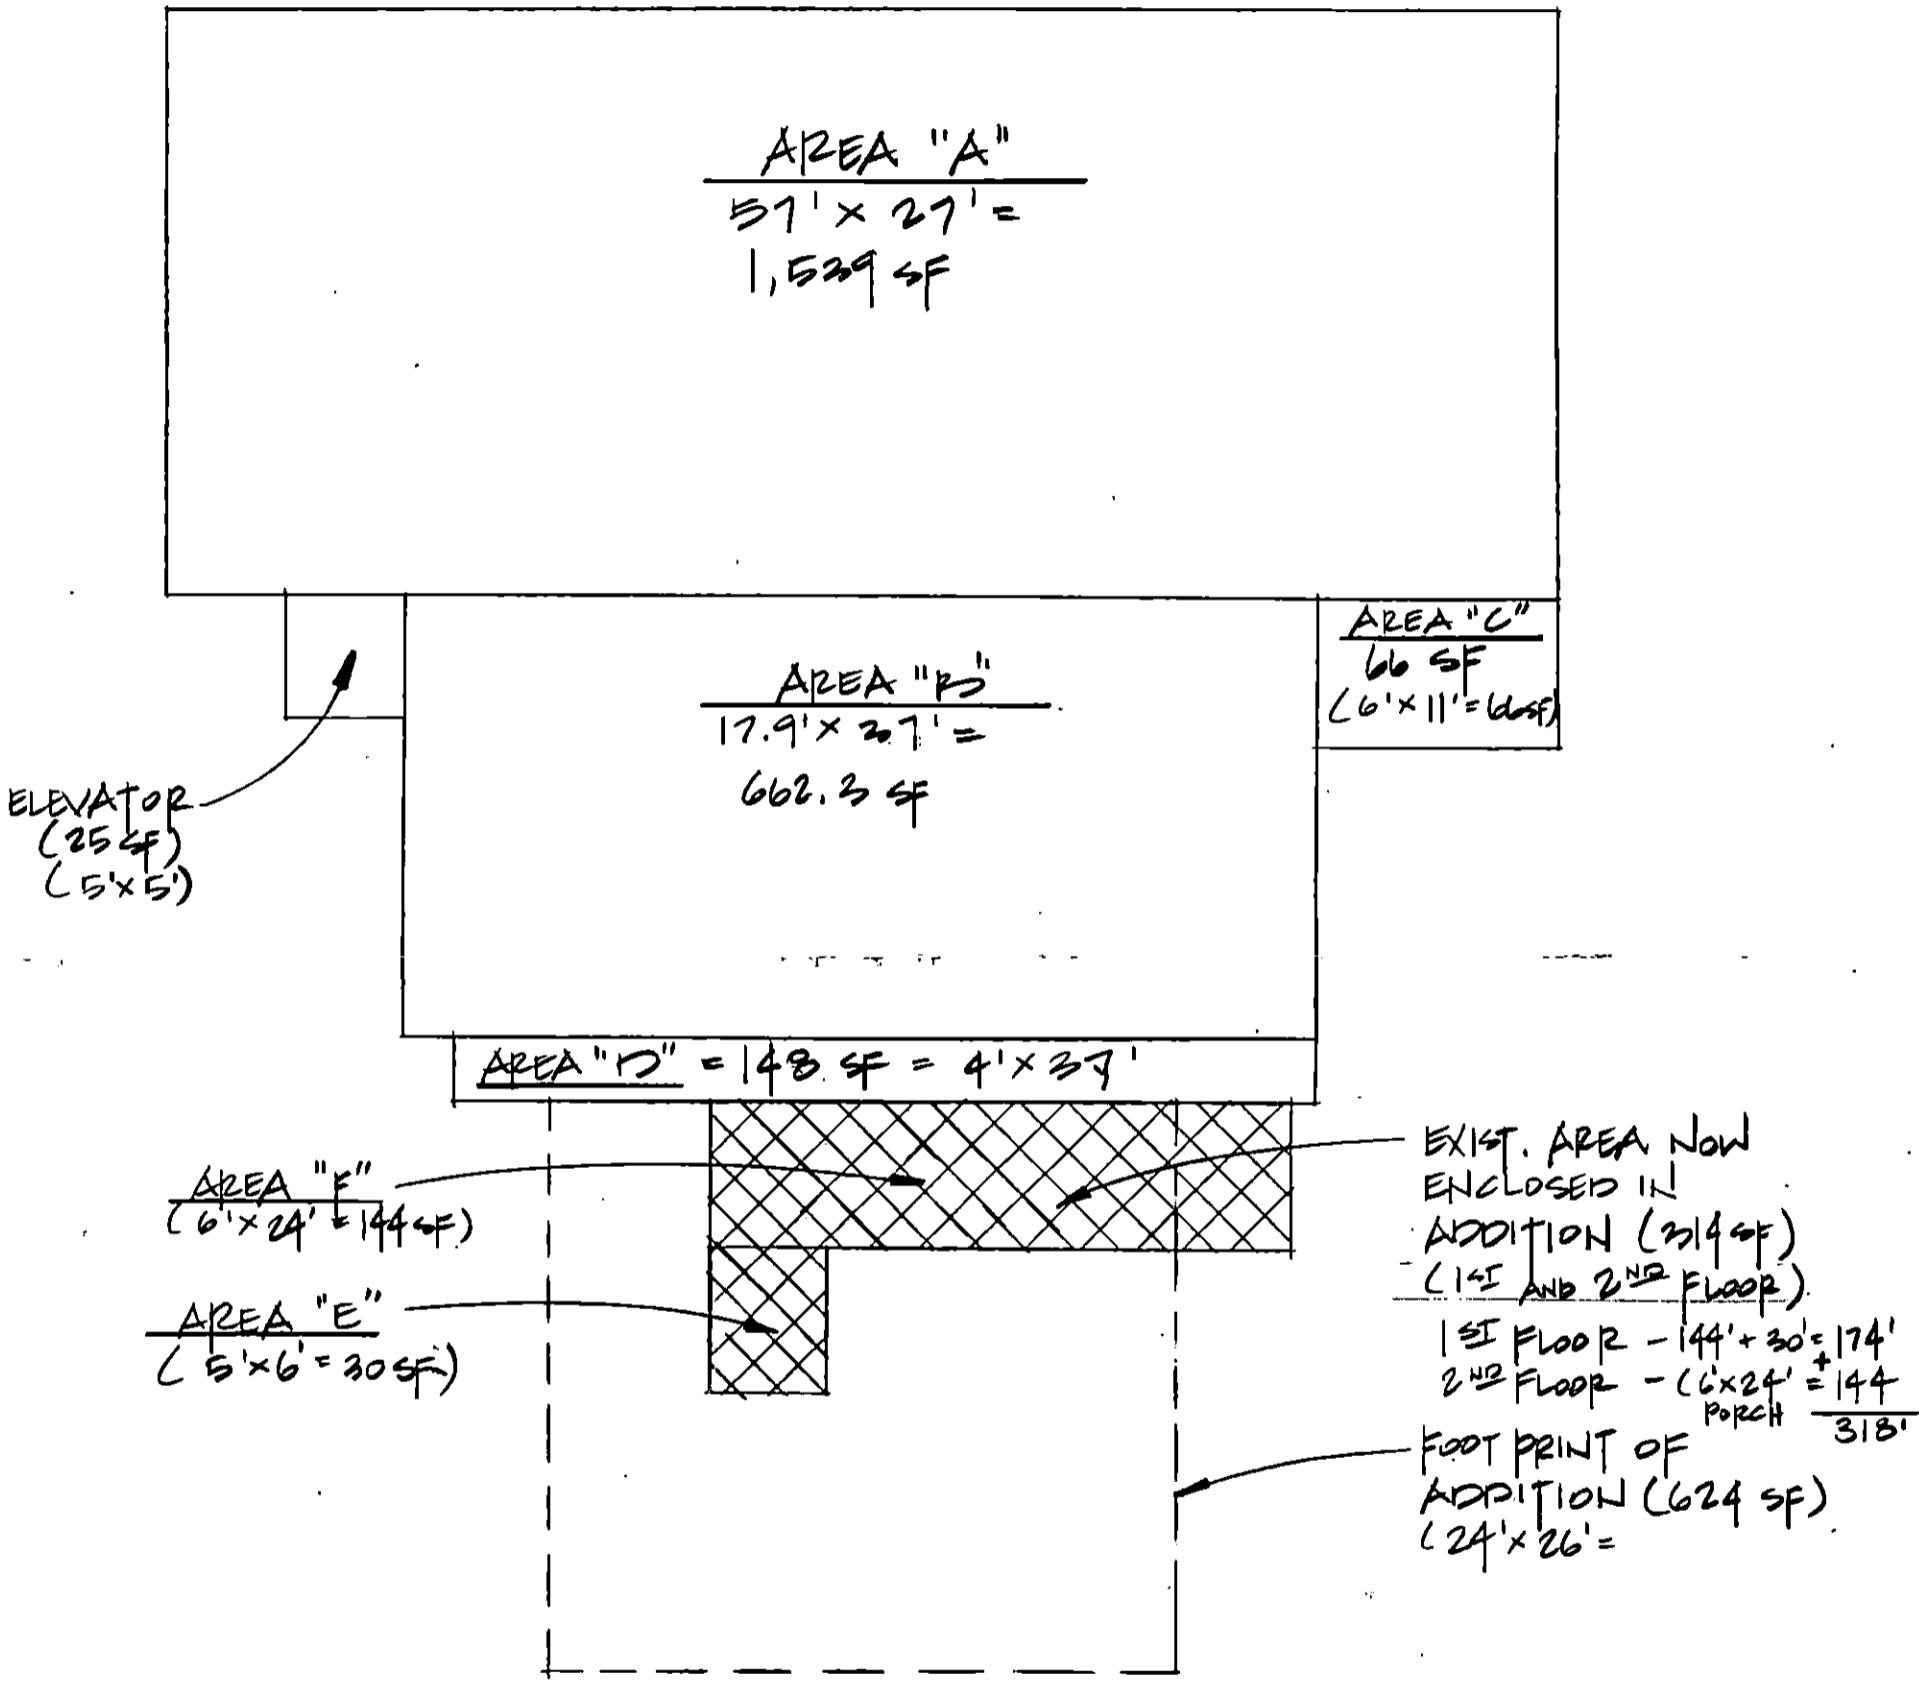 AREA "A"
57' × 27' =
1,539 SF
AREA "B"
17.9' × 37' =
662.3 SF
AREA "C"
66 SF
(6' × 11' = 66 SF)
ELEVATOR
(25 SF)
(5' × 5')
AREA "D" = 148 SF = 4' × 37'
AREA "F"
(6' × 24' = 144 SF)
AREA "E"
(5' × 6' = 30 SF)
EXIST. AREA NOW
ENCLOSED IN
ADDITION (314 SF)
(1ST AND 2ND FLOOR)
1ST FLOOR - 144' + 30' = 174'
+
2ND FLOOR - (6' × 24' = 144
PORCH
318'
FOOT PRINT OF
ADDITION (624 SF)
(24' × 26' =